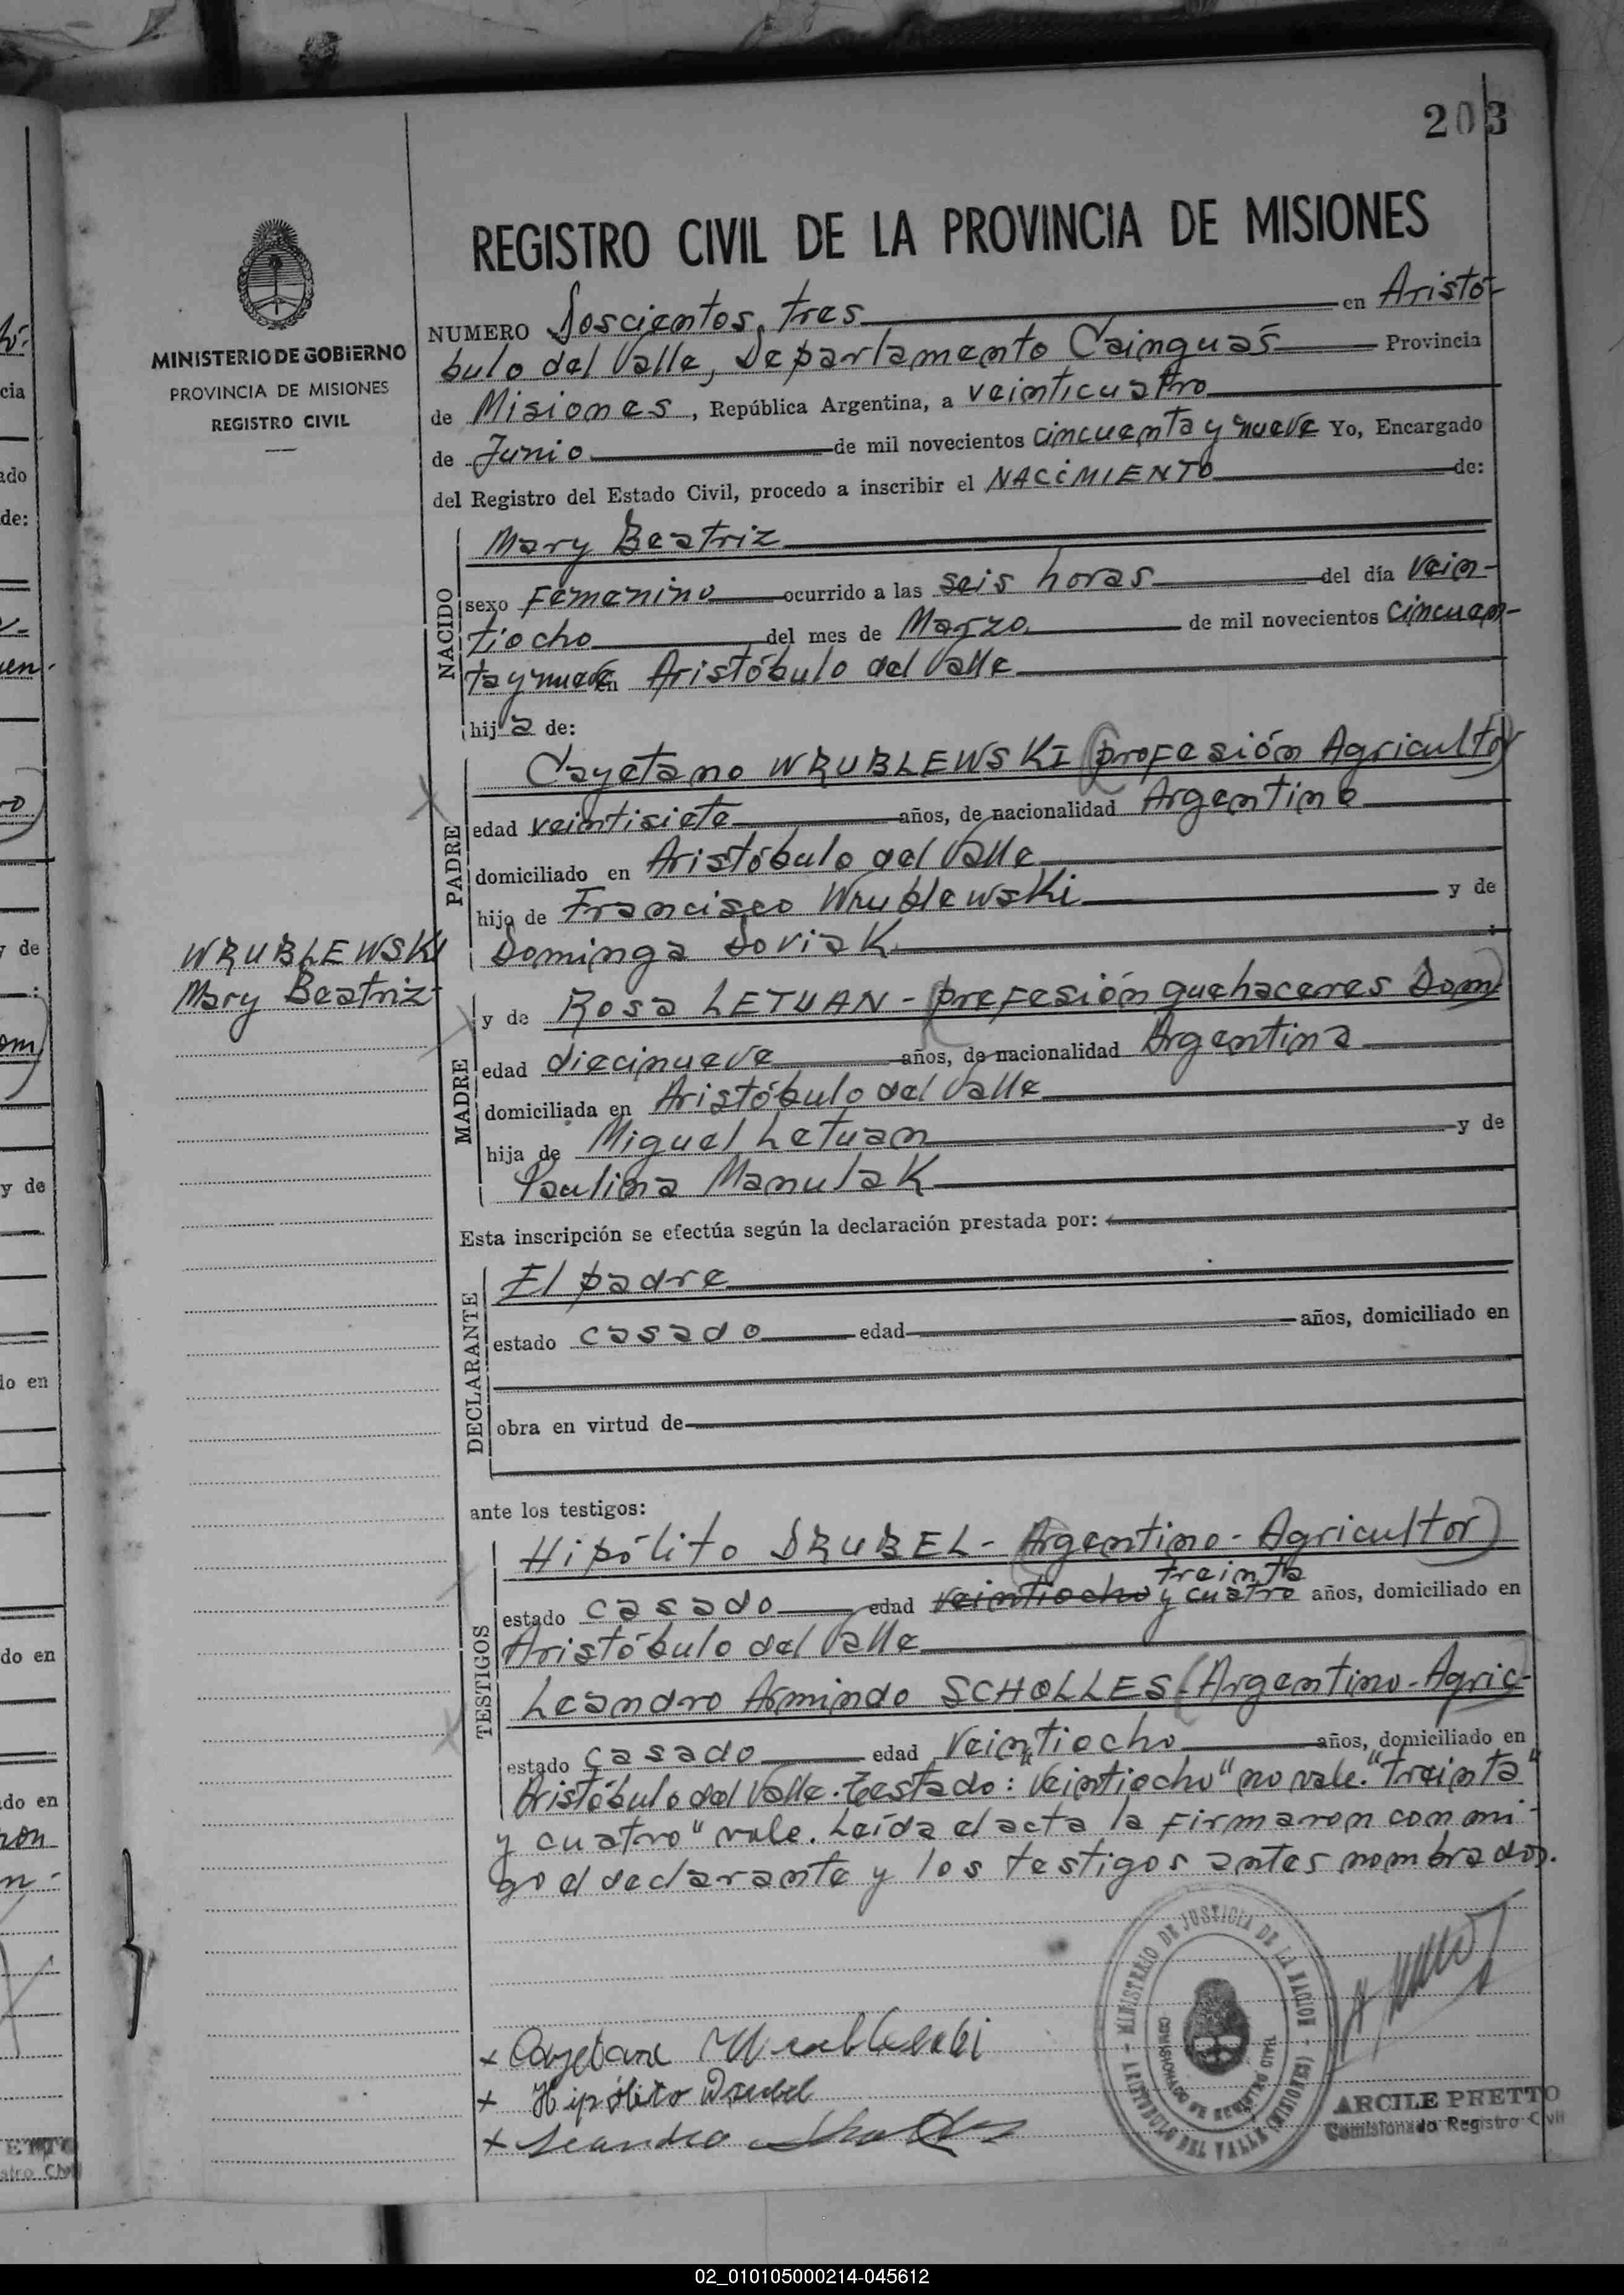 203
REGISTRO CIVIL DE LA PROVINCIA DE MISIONES
MINISTERIO DE GOBIERNO
PROVINCIA DE MISIONES
REGISTRO CIVIL
NUMERO Doscientos tres en Aristó-
bulo del Valle, Departamento Cainguás Provincia
de Misiones, República Argentina, a veinticuatro
de Junio de mil novecientos cincuenta y nueve Yo, Encargado
del Registro del Estado Civil, procedo a inscribir el NACIMIENTO de:
NACIDO
Mary Beatriz
sexo Femenino ocurrido a las seis horas del día vein-
tiocho del mes de Marzo de mil novecientos cincuen-
ta y nueve en Aristóbulo del Valle
hija de:
PADRE
Cayetano WRUBLEWSKI (profesión Agricultor)
edad veintisiete años, de nacionalidad Argentino
domiciliado en Aristóbulo del Valle
hijo de Francisco Wrublewski y de
Dominga Doviak
WRUBLEWSKI
Mary Beatriz
MADRE
y de Rosa LETUAN - (prefesión quehaceres Dom)
edad diecinueve años, de nacionalidad Argentina
domiciliada en Aristóbulo del Valle
hija de Miguel Letuan y de
Paulina Manulak
Esta inscripción se efectúa según la declaración prestada por:
DECLARANTE
El padre
estado casado edad años, domiciliado en
obra en virtud de
ante los testigos:
TESTIGOS
Hipólito DRUBEL - (Argentino - Agricultor)
treinta
estado casado edad veintiocho y cuatro años, domiciliado en
Aristóbulo del Valle
Leandro Armindo SCHOLLES (Argentino - Agric-
estado casado edad veintiocho años, domiciliado en
Aristóbulo del Valle. Testado: "veintiocho" no vale. "treinta
y cuatro" vale. Leída el acta la firmaron conmi-
go el declarante y los testigos antes nombrados.
MINISTERIO DE JUSTICIA DE LA NACION
ARISTOBULO DEL VALLE (MISIONES)
x Cayetano Wrublewski
x Hipólito Drubel
x Leandro
ARCILE PRETTO
Comisionado Registro Civil
02_010105000214-045612